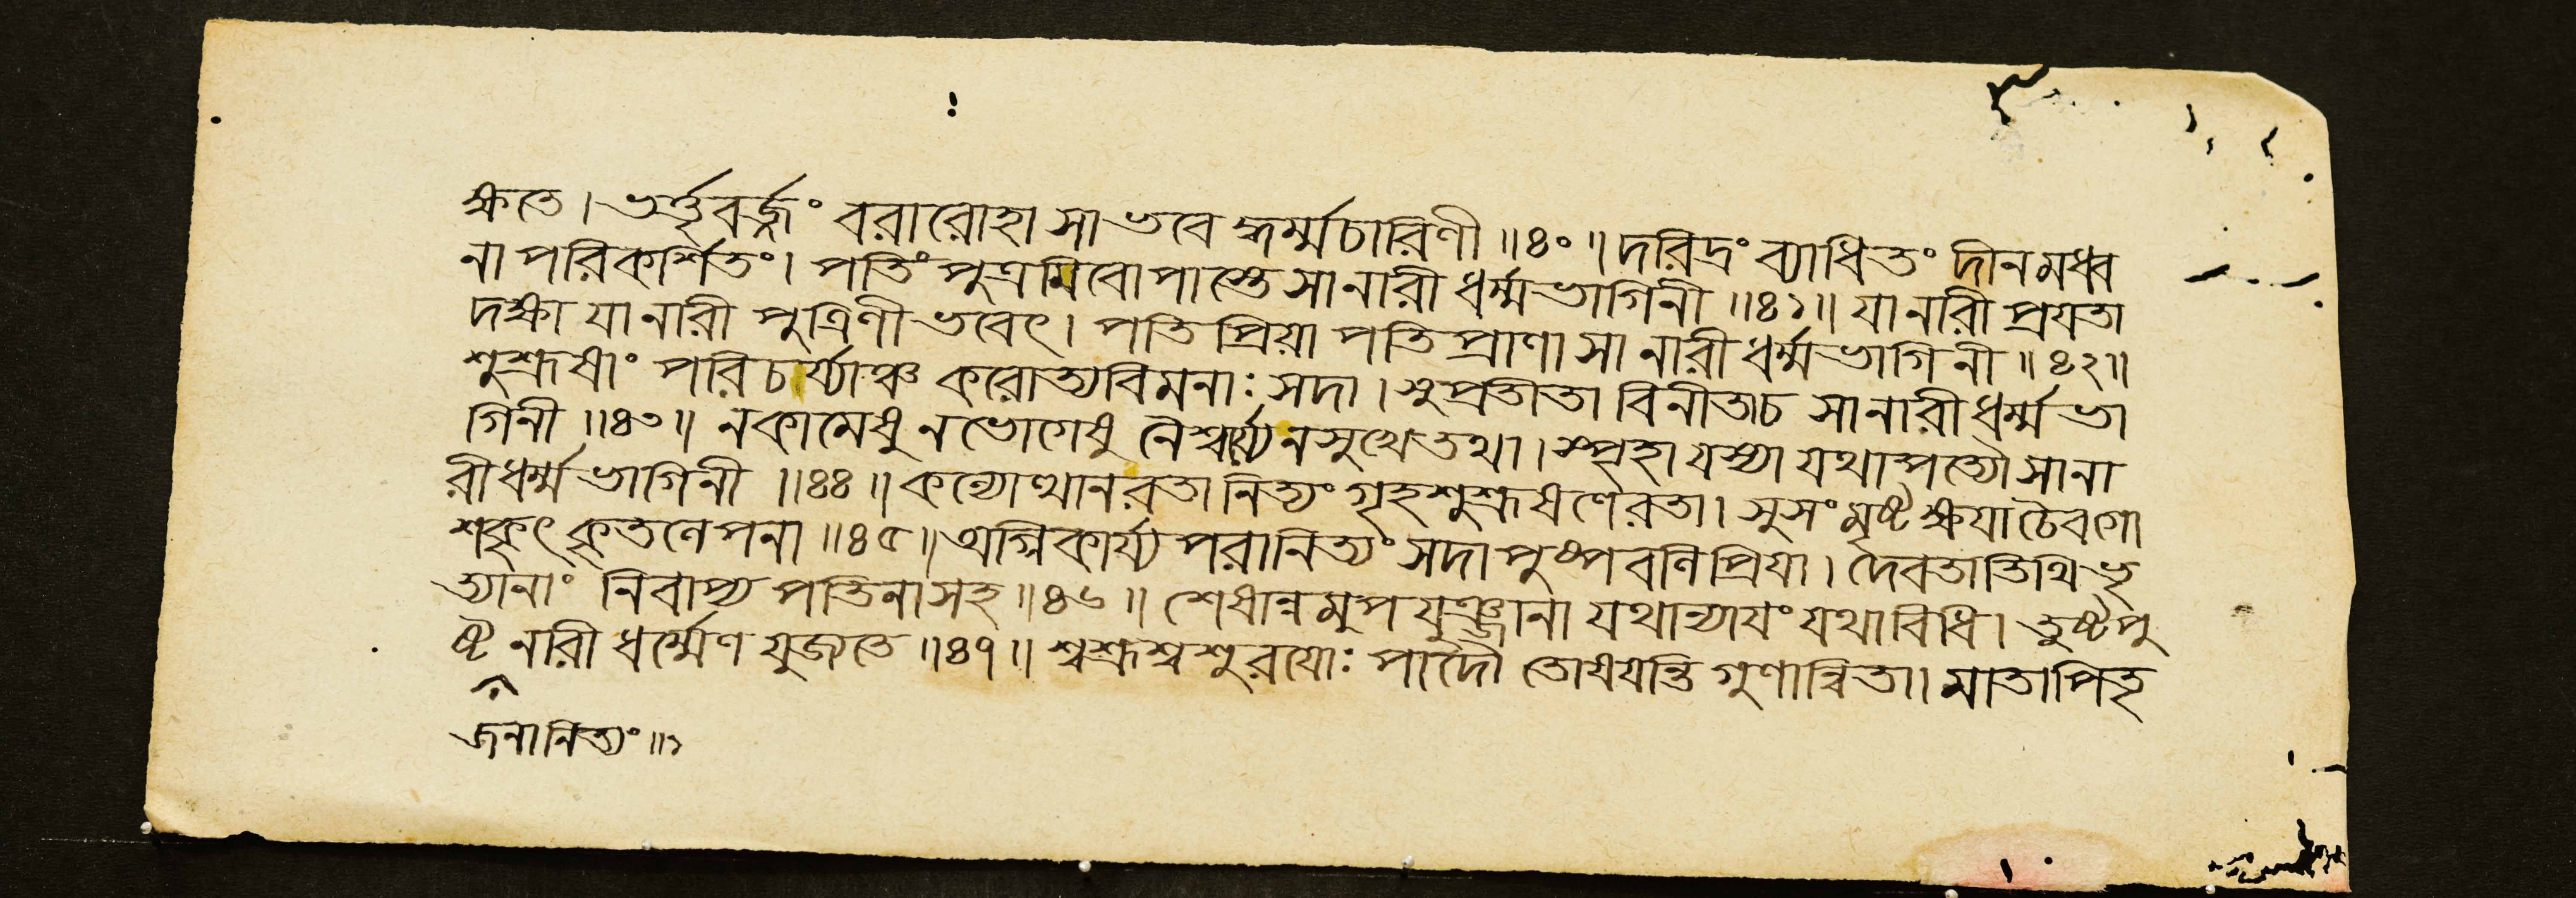 ক্ষতে। ভর্ত্তৃবর্জ্জং বরারোহা সা ভবে দ্ধর্ম্মচারিণী ॥৪০॥ দরিদ্রং ব্যাধিতং দীনমধ্ব
না পরিকর্শিতং। পতিং পুত্রমিবোপাস্তে সা নারী ধর্ম্মভাগিনী ॥৪১॥ যা নারী প্রযতা
দক্ষা যা নারী পুত্রিণী ভবেৎ। পতিপ্রিয়া পতিপ্রাণা সা নারী ধর্ম্মভাগিনী ॥৪২॥
শুশ্রূষাং পরিচার্য্যাঞ্চ করোত্যবিমনাঃ সদা। সুপ্রতীতা বিনীতাচ সা নারী ধর্ম্মভা
গিনী ॥৪৩॥ ন কামেষু ন ভোগেষু নৈশ্বর্য্যে ন সুখে তথা। স্পৃহা যস্যা যথা পত্যৌ সা না
রী ধর্ম্মভাগিনী ॥৪৪॥ কল্যোত্থানরতা নিত্যং গৃহশুশ্রূষণে রতা। সুসংমৃষ্টক্ষয়া চৈব গো
শকৃৎ কৃতলেপনা ॥৪৫॥ অগ্নিকার্য্যপরা নিত্যং সদা পুষ্পবলিপ্রিয়া। দেবতাতিথিভৃ
ত্যানাং নিবাপ্য পতিনা সহ ॥৪৬॥ শেষান্নমুপযুঞ্জানা যথান্যায়ং যথাবিধি। তুষ্টপু
ষ্ট নারী ধর্ম্মেণ যুজ্যতে ॥৪৭॥ শ্বশ্রূশ্বশুরয়োঃ পাদৌ তোষয়ন্তি গুণান্বিতা। মাতাপিতৃ
জনা নিত্যং ॥১